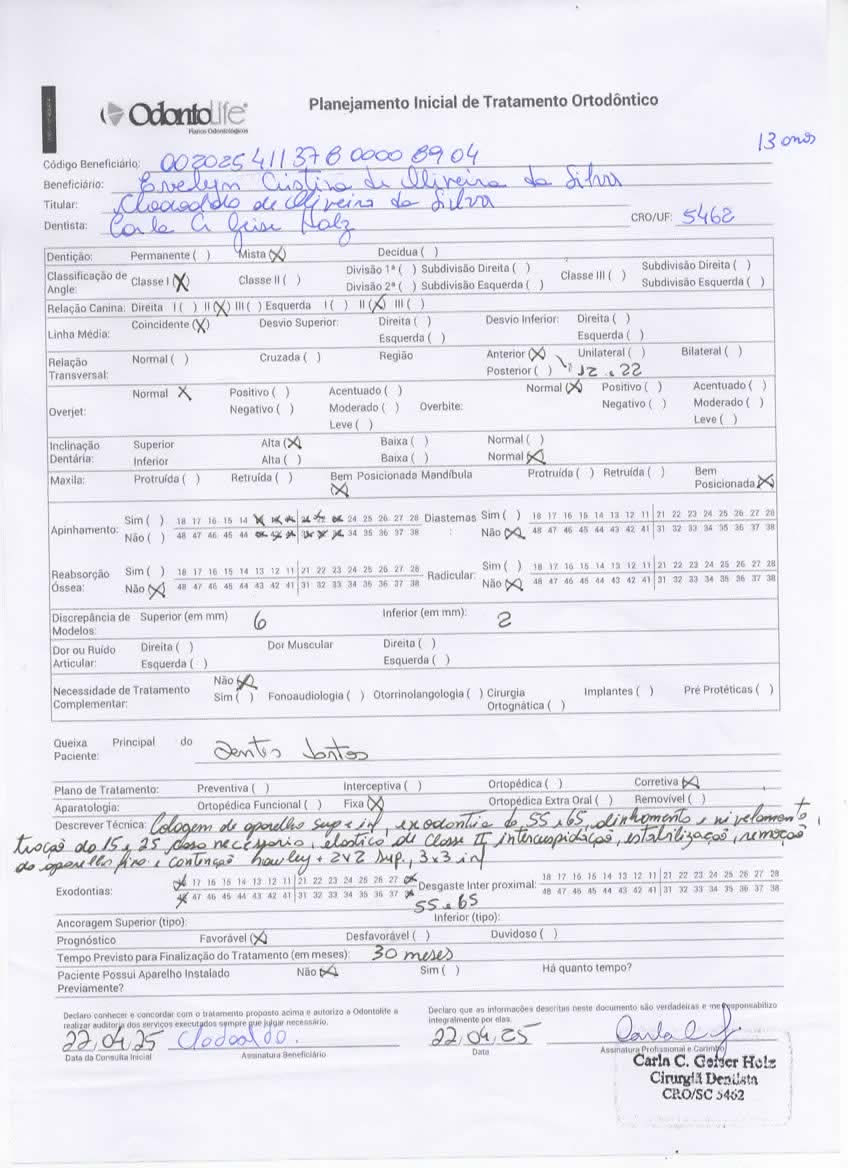 OdontoLife
Planos Odontológicos
Planejamento Inicial de Tratamento Ortodôntico
13 anos
Código Beneficiário: 00202541137800008904
Beneficiário: Evelyn Cristina de Oliveira da Silva
Titular: Clodoaldo de Oliveira da Silva
Dentista: Carla C Geiser Holz CRO/UF: 5462
Dentição: Permanente ( ) Mista (X) Decídua ( )
Classificação de Angle: Classe I (X) Classe II ( ) Divisão 1ª ( ) Subdivisão Direita ( ) Classe III ( ) Subdivisão Direita ( )
Divisão 2ª ( ) Subdivisão Esquerda ( ) Subdivisão Esquerda ( )
Relação Canina: Direita I ( ) II (X) III ( ) Esquerda I ( ) II (X) III ( )
Linha Média: Coincidente (X) Desvio Superior: Direita ( ) Desvio Inferior: Direita ( )
Esquerda ( ) Esquerda ( )
Relação Transversal: Normal ( ) Cruzada ( ) Região Anterior (X) Unilateral ( ) Bilateral ( )
Posterior ( ) 12 e 22
Overjet: Normal X Positivo ( ) Acentuado ( ) Overbite: Normal (X) Positivo ( ) Acentuado ( )
Negativo ( ) Moderado ( ) Negativo ( ) Moderado ( )
Leve ( ) Leve ( )
Inclinação Dentária: Superior Alta (X) Baixa ( ) Normal ( )
Inferior Alta ( ) Baixa ( ) Normal (X)
Maxila: Protruída ( ) Retruída ( ) Bem Posicionada (X) Mandíbula Protruída ( ) Retruída ( ) Bem Posicionada (X)
Apinhamento: Sim ( ) 18 17 16 15 14 24 25 26 27 28 Diastemas: Sim ( ) 18 17 16 15 14 13 12 11 21 22 23 24 25 26 27 28
Não ( ) 48 47 46 45 44 34 35 36 37 38 Não (X) 48 47 46 45 44 43 42 41 31 32 33 34 35 36 37 38
Reabsorção Óssea: Sim ( ) 18 17 16 15 14 13 12 11 21 22 23 24 25 26 27 28 Radicular: Sim ( ) 18 17 16 15 14 13 12 11 21 22 23 24 25 26 27 28
Não (X) 48 47 46 45 44 43 42 41 31 32 33 34 35 36 37 38 Não (X) 48 47 46 45 44 43 42 41 31 32 33 34 35 36 37 38
Discrepância de Modelos: Superior (em mm) 6 Inferior (em mm): 2
Dor ou Ruído Articular: Direita ( ) Dor Muscular Direita ( )
Esquerda ( ) Esquerda ( )
Necessidade de Tratamento Complementar: Não (X)
Sim ( ) Fonoaudiologia ( ) Otorrinolangologia ( ) Cirurgia Ortognática ( ) Implantes ( ) Pré Protéticas ( )
Queixa Principal do Paciente: Dentes tortos
Plano de Tratamento: Preventiva ( ) Interceptiva ( ) Ortopédica ( ) Corretiva (X)
Aparatologia: Ortopédica Funcional ( ) Fixa (X) Ortopédica Extra Oral ( ) Removível ( )
Descrever Técnica: Colagem de aparelho sup e inf, exodontia do 55 e 65, alinhamento e nivelamento,
tração do 15 e 25 caso necessario, elastico de classe II, intercuspidação, estabilização, remoção
do aparelho fixo e contenção hawley + 2x2 sup, 3x3 inf
Exodontias: 17 16 15 14 13 12 11 21 22 23 24 25 26 27 Desgaste Inter proximal: 18 17 16 15 14 13 12 11 21 22 23 24 25 26 27 28
47 46 45 44 43 42 41 31 32 33 34 35 36 37 48 47 46 45 44 43 42 41 31 32 33 34 35 36 37 38
55 e 65
Ancoragem Superior (tipo): Inferior (tipo):
Prognóstico Favorável (X) Desfavorável ( ) Duvidoso ( )
Tempo Previsto para Finalização do Tratamento (em meses): 30 meses
Paciente Possui Aparelho Instalado Previamente? Não (X) Sim ( ) Há quanto tempo?
Declaro conhecer e concordar com o tratamento proposto acima e autorizo a Odontolife a
realizar auditoria dos serviços executados sempre que julgar necessário.
Declaro que as informações descritas neste documento são verdadeiras e me responsabilizo
integralmente por elas.
22/04/25 Clodoaldo. 22/04/25 Carla C. G.
Data da Consulta Inicial Assinatura Beneficiário Data Assinatura Profissional e Carimbo
Carla C. Geiser Holz
Cirurgiã Dentista
CRO/SC 5462